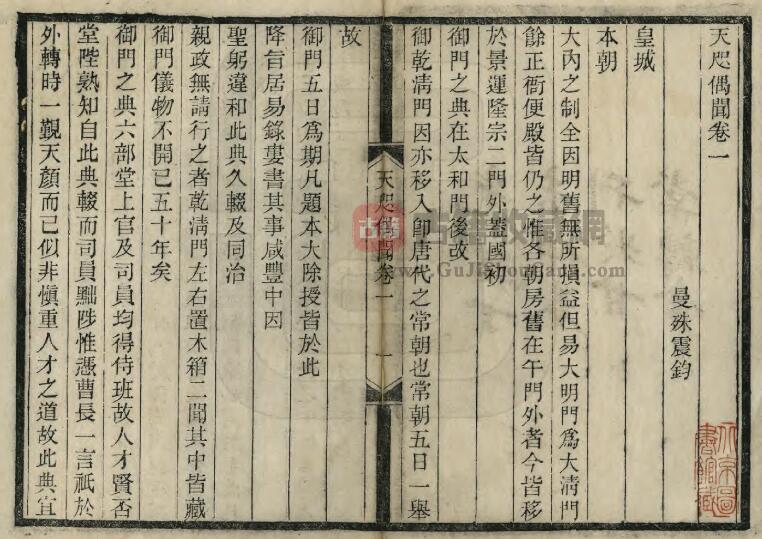 天咫偶聞卷一
曼殊震鈞
皇城
本朝
大內之制全因明舊無所損益但易大明門爲大淸門
餘正衙便殿皆仍之惟各朝房舊在午門外者今皆移
於景運隆宗二門外蓋國初
御門之典在太和門後故
御乾淸門因亦移入卽唐代之常朝也常朝五日一舉
天咫偶聞卷一
一
故
御門五日爲期凡題本大除授皆於此
降旨居易錄婁書其事咸豐中因
聖躬違和此典久輟及同治
親政無請行之者乾淸門左右置木箱二聞其中皆藏
御門儀物不開已五十年矣
御門之典六部堂上官及司員均得侍班故人才賢否
堂陛熟知自此典輟而司員黜陟惟憑曹長一言祇於
外轉時一覲天顏而已似非愼重人才之道故此典宜
古籍
www.GuJiShouCang.com